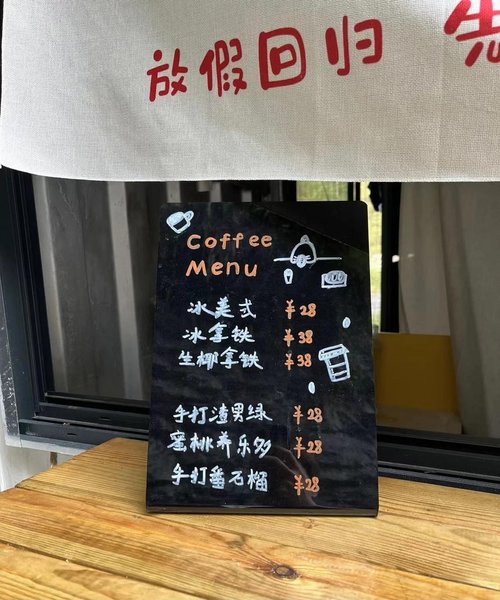 放假回归
Coffee
Menu
冰美式 ¥28
冰拿铁 ¥38
生椰拿铁 ¥38
手打渣男绿 ¥28
蜜桃养乐多 ¥28
手打番石榴 ¥28